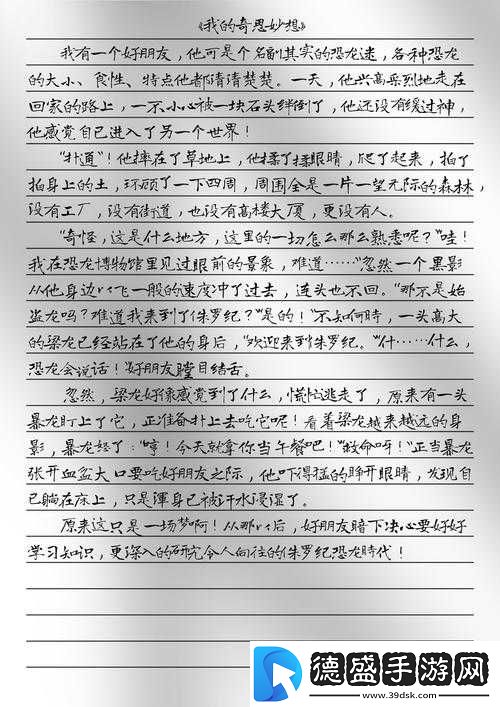 《我的奇思妙想》
我有一个好朋友，他可是个名副其实的恐龙迷，各种恐龙
的大小、食性、特点他都清清楚楚。一天，他兴高采烈地走在
回家的路上，一不小心被一块石头绊倒了，他还没有缓过神，
他感觉自己进入了另一个世界！
“扑通”！他摔在了草地上，他揉了揉眼睛，爬了起来，拍了
拍身上的土，环顾了一下四周，周围全是一片一望无际的森林，
没有工厂，没有街道，也没有高楼大厦，更没有人。
“奇怪，这是什么地方，这里的一切怎么那么熟悉呢？”哇！
我在恐龙博物馆里见过眼前的景象，难道……”忽然一个黑影
从他身边以飞一般的速度冲了过去，连头也不回。“那不是始
盗龙吗？难道我来到了侏罗纪？”“是的！”不知何時，一头高大
的梁龙已经站在了他的身后，“欢迎来到侏罗纪。”“什……什么，
恐龙会说话！”好朋友瞠目结舌。
忽然，梁龙好像感觉到了什么，慌忙逃走了，原来有一头
暴龙盯上了它，正准备扑上去吃它呢！看着梁龙越来越远的身
影，暴龙怒了：“哼！今天就拿你当午餐吧！”“救命呀！”正当暴龙
张开血盆大口要吃好朋友之际，他吓得猛的睁开眼睛，发现自
己躺在床上，只是渾身已被汗水浸湿了。
原来这只是一场梦啊！从那以后，好朋友暗下决心要好好
学习知识，更深入的研究令人向往的侏罗纪恐龙時代！
德盛手游网
www.39dsk.com